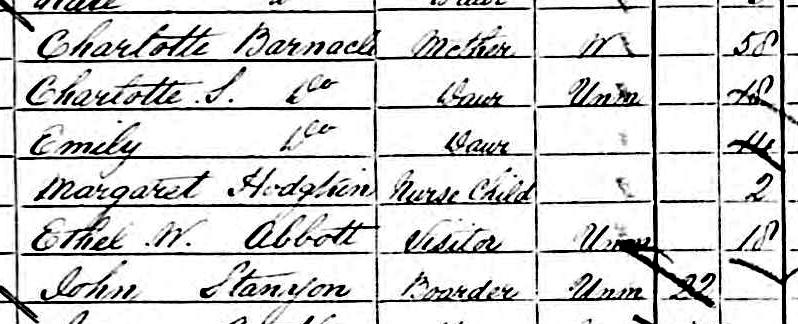 Charlotte Barnacle Mother W 58
Charlotte S. Do Daur Unm 18
Emily Do Daur 14
Margaret Hodgkin Nurse Child 2
Ethel W. Abbott Visitor Unm 18
John Stanyon Boarder Unm 22